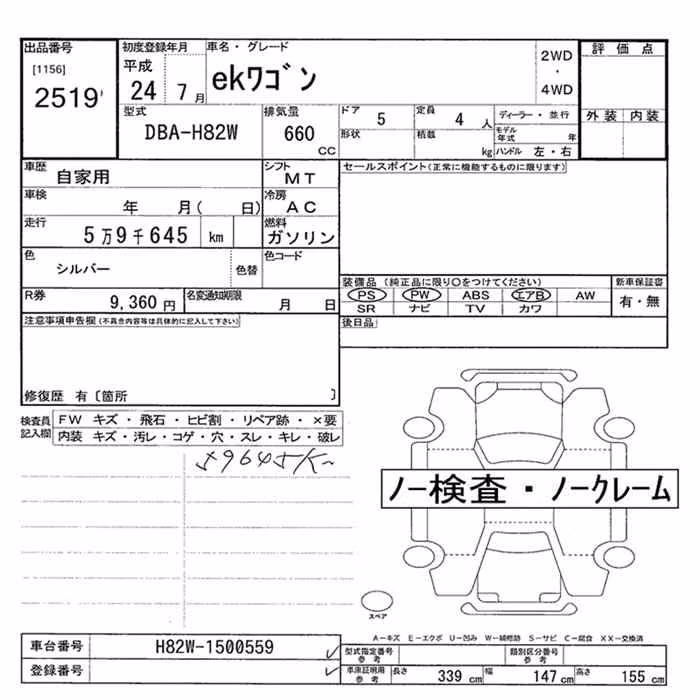 出品番号
[1156]
2519
初度登録年月
平成
24 7月
車名・グレード
ekワゴン
2WD
・
4WD
評価点
外装 内装
型式
DBA-H82W
排気量
660
CC
ドア 5
定員 4 人
ディーラー・並行
形状
積載
kg
モデル年式 年
ハンドル 左・右
車歴
自家用
シフト
MT
車検
年 月( 日)
冷房
AC
走行
5万9千645 km
燃料
ガソリン
色
シルバー
色替
色コード
R券
9,360 円
名変通知期限
月 日
セールスポイント(正常に機能するものに限ります)
装備品 (純正品に限り○をつけてください)
PS PW ABS エアB AW
SR ナビ TV カワ
新車保証書
有・無
後日品
注意事項申告欄 (不具合内容等は具体的に記入して下さい)
修復歴 有〔箇所 〕
検査員
記入欄
FW キズ・飛石・ヒビ割・リペア跡・×要
内装 キズ・汚レ・コゲ・穴・スレ・キレ・破レ
59645K~
ノー検査・ノークレーム
スペア
A―キズ E―エクボ U―凹み W―補修跡 S―サビ C―腐食 XX―交換済
車台番号 H82W-1500559
登録番号
型式指定番号
参考
類別区分番号
参考
車庫証明用
参考
長さ 339 cm 幅 147 cm 高さ 155 cm